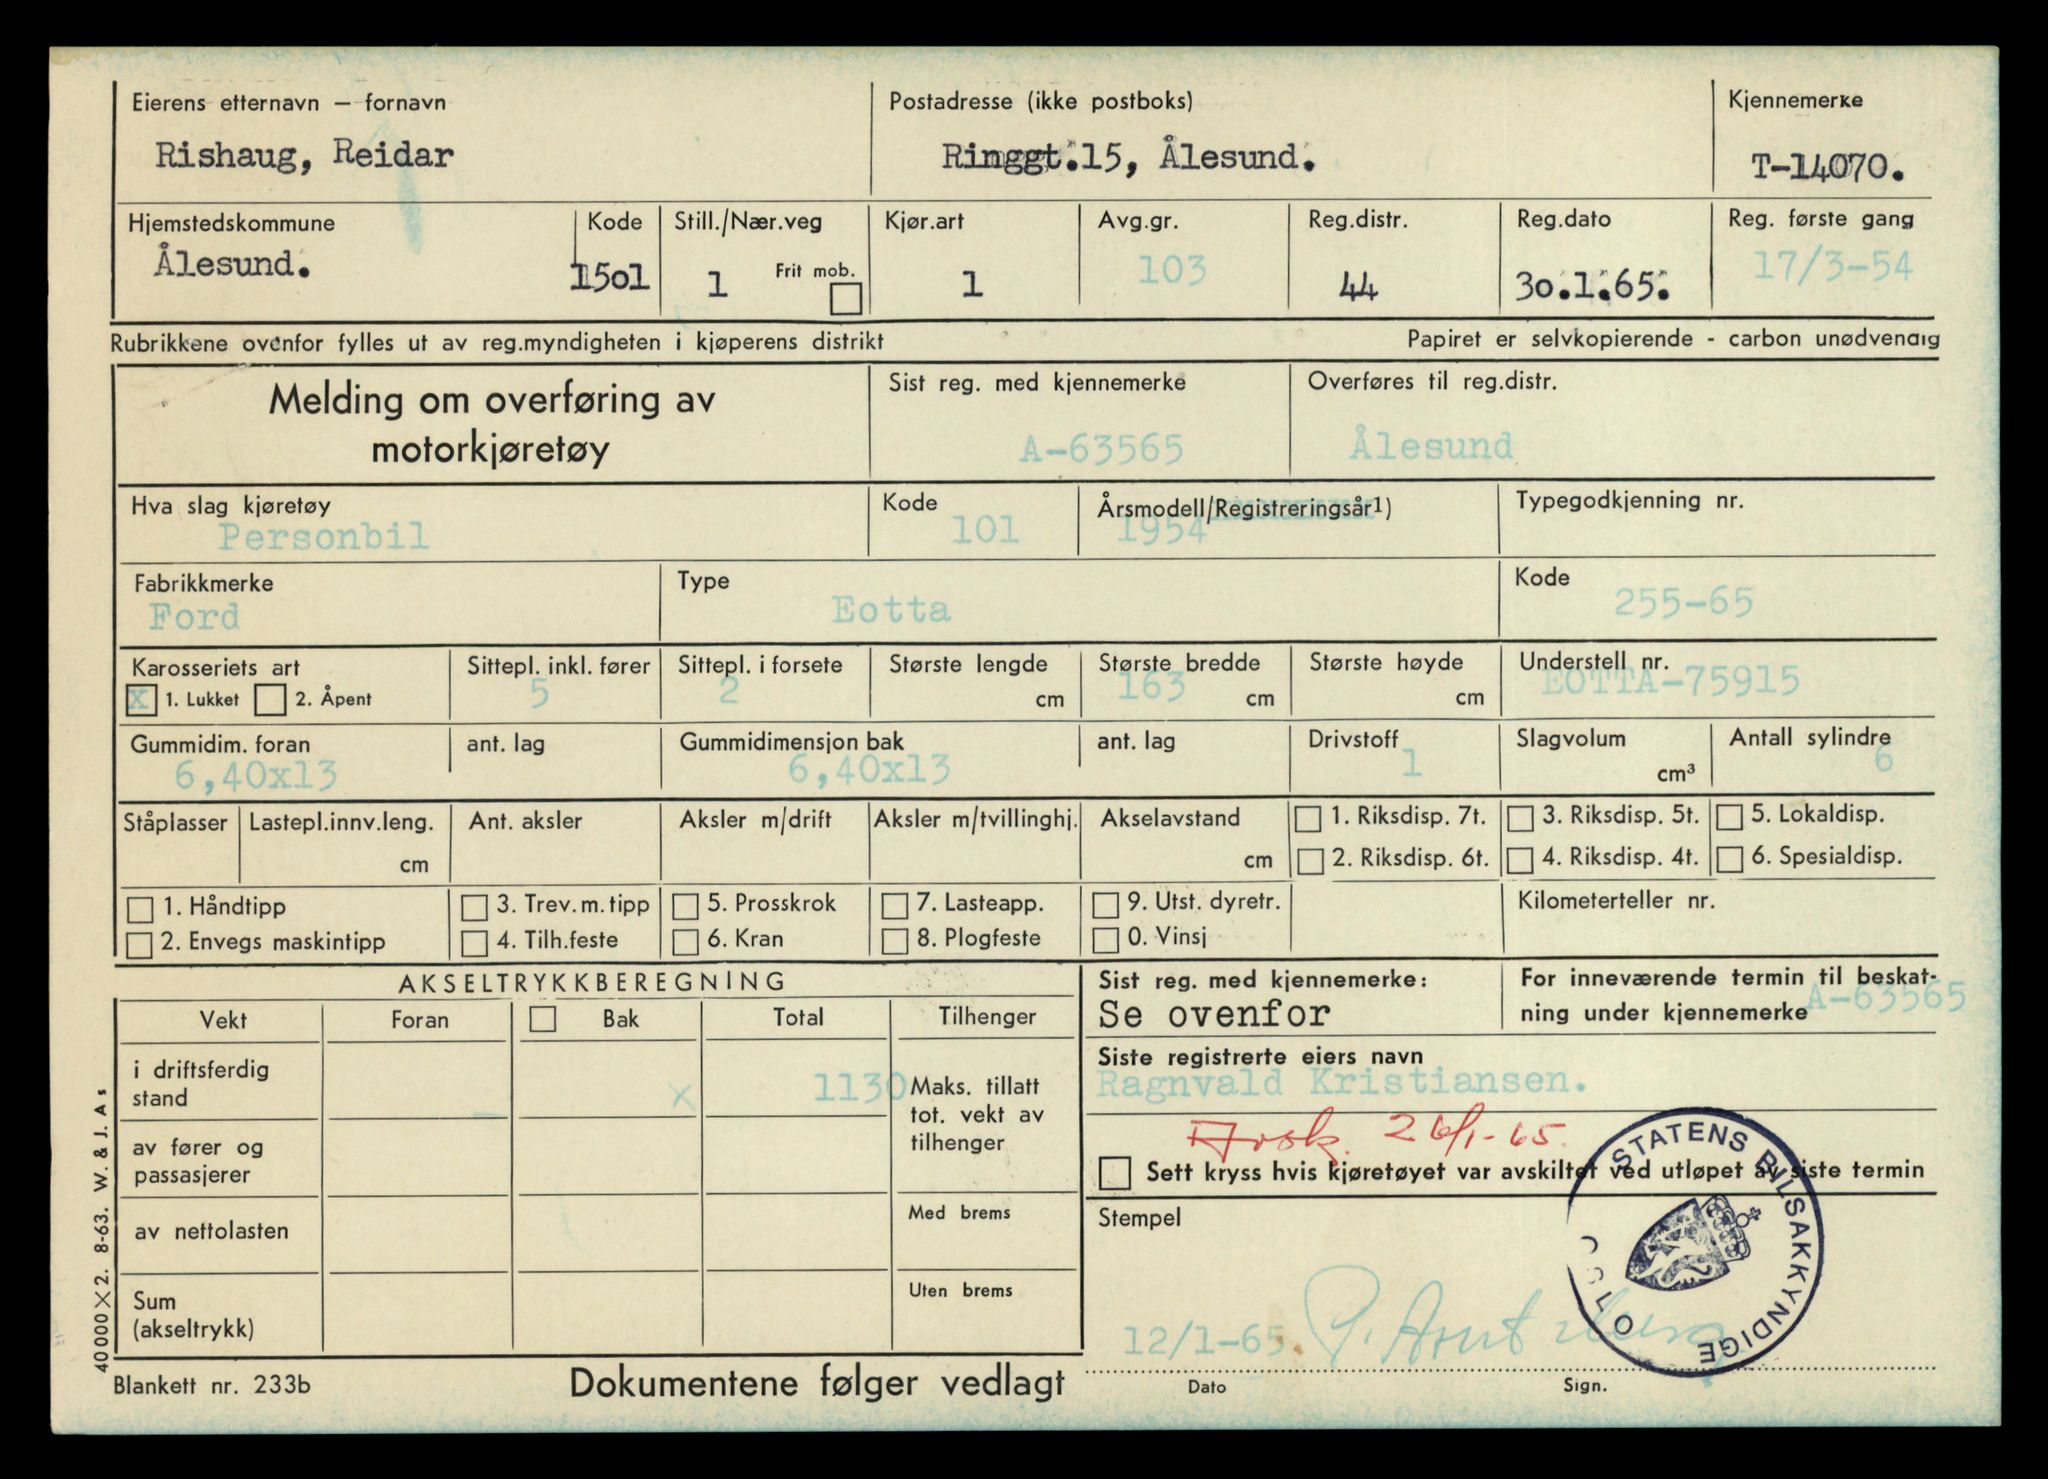 Eierens etternavn – fornavn
Rishaug, Reidar
Postadresse (ikke postboks)
Ringgt.15, Ålesund.
Kjennemerke
T-14070.
Hjemstedskommune
Ålesund.
Kode
1501
Still./Nær.veg
1
Frit mob.
Kjør.art
1
Avg.gr.
103
Reg.distr.
44
Reg.dato
30.1.65.
Reg. første gang
17/3-54
Rubrikkene ovenfor fylles ut av reg.myndigheten i kjøperens distrikt
Papiret er selvkopierende - carbon unødvendig
Melding om overføring av
motorkjøretøy
Sist reg. med kjennemerke
A-63565
Overføres til reg.distr.
Ålesund
Hva slag kjøretøy
Personbil
Kode
101
Årsmodell/Registreringsår1)
1954
Typegodkjenning nr.
Fabrikkmerke
Ford
Type
Eotta
Kode
255-65
Karosseriets art
X 1. Lukket 2. Åpent
Sittepl. inkl. fører
5
Sittepl. i forsete
2
Største lengde
cm
Største bredde
163 cm
Største høyde
cm
Understell nr.
EOTTA-75915
Gummidim. foran
6,40x13
ant. lag
Gummidimensjon bak
6,40x13
ant. lag
Drivstoff
1
Slagvolum
cm³
Antall sylindre
6
Ståplasser
Lastepl.innv.leng.
cm
Ant. aksler
Aksler m/drift
Aksler m/tvillinghj.
Akselavstand
cm
1. Riksdisp. 7t.
2. Riksdisp. 6t.
3. Riksdisp. 5t.
4. Riksdisp. 4t.
5. Lokaldisp.
6. Spesialdisp.
1. Håndtipp
2. Envegs maskintipp
3. Trev. m. tipp
4. Tilh.feste
5. Prosskrok
6. Kran
7. Lasteapp.
8. Plogfeste
9. Utst. dyretr.
0. Vinsj
Kilometerteller nr.
AKSELTRYKKBEREGNING
Vekt
Foran
Bak
Total
Tilhenger
i driftsferdig
stand
x
1130
Maks. tillatt
tot. vekt av
tilhenger
av fører og
passasjerer
av nettolasten
Med brems
Sum
(akseltrykk)
Uten brems
Sist reg. med kjennemerke:
Se ovenfor
For inneværende termin til beskat-
ning under kjennemerke A-63565
Siste registrerte eiers navn
Ragnvald Kristiansen.
26/1-65.
Sett kryss hvis kjøretøyet var avskiltet ved utløpet av siste termin
Stempel
STATENS BILSAKKYNDIGE
OSLO
12/1-65.
Dato
Sign.
40000 X 2. 8-63. W. & J. A s
Blankett nr. 233b
Dokumentene følger vedlagt